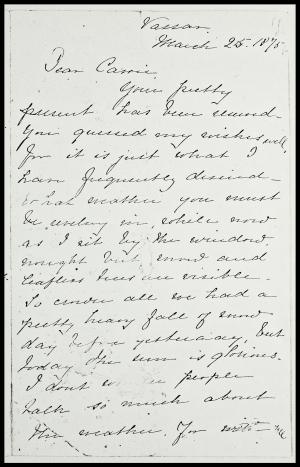 Vassar.
March 25. 1875
Dear Carrie,
Your pretty
present has been received.
You guessed my wishes well,
for it is just what I
have frequently desired.
What weather you must
be reveling in, while now
as I sit by the window,
nought but snow and
leafless trees are visible.
To crown all we had a
pretty heavy fall of snow
day before yesterday, but
today the sun is glorious.
I dont people
talk so much about
the weather. For me